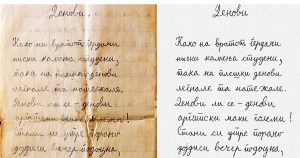 Денови
Како на вратот ѓердани
ниски камења студени,
така на плешки денови
легнале та натежале.
Денови ли се - денови
аргатски маки големи!
Стани си утре порано
дојди си вечер подоцна,
Денови
Како на вратот ѓердани
ниски камења студени,
така на плешки денови
легнале та натежале.
Денови ли се - денови.
аргатски маки големи!
Стани си утре порано
дојди си вечер подоцна,